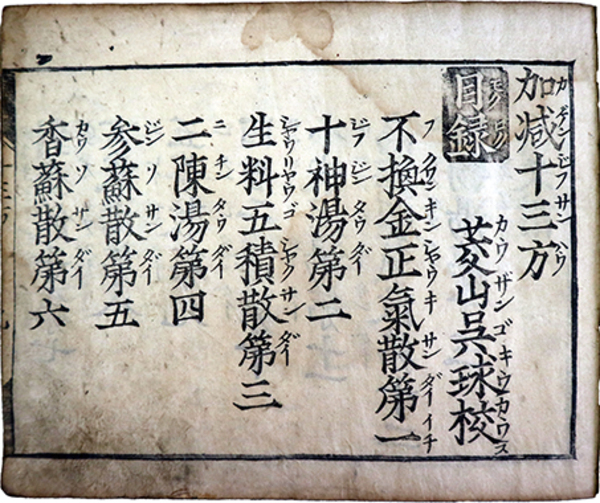 加减十三方
カ ゲン ジフ サン ハウ
目録
モク ロク
茭山呉球校
カウ ザン ゴ キウ カウス
不換金正氣散第一
フ クワン キン シャウ キ サン ダイ イチ
十神湯第二
ジフ ジン タウ ダイ
生料五積散第三
シャウ リヤウ ゴ シャク サン ダイ
二陳湯第四
ニ チン タウ ダイ
参蘇散第五
ジン ソ サン ダイ
香蘇散第六
カウ ソ サン ダイ